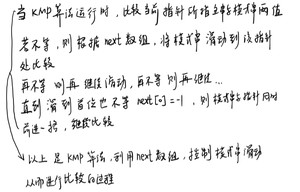 当 KMP 算法运行时，比较当前指针所指主串与模式串两值
若不等，则根据 next 数组，将模式串滑动到该指针
处比较
再不等 则再继续滑动，再不等则再继续…
直到滑到首位也不等 next[0]=-1，则模式串与指针同时
前进一格，继续比较
以上是KMP算法，利用next数组，控制模式串滑动
从而进行比较的过程